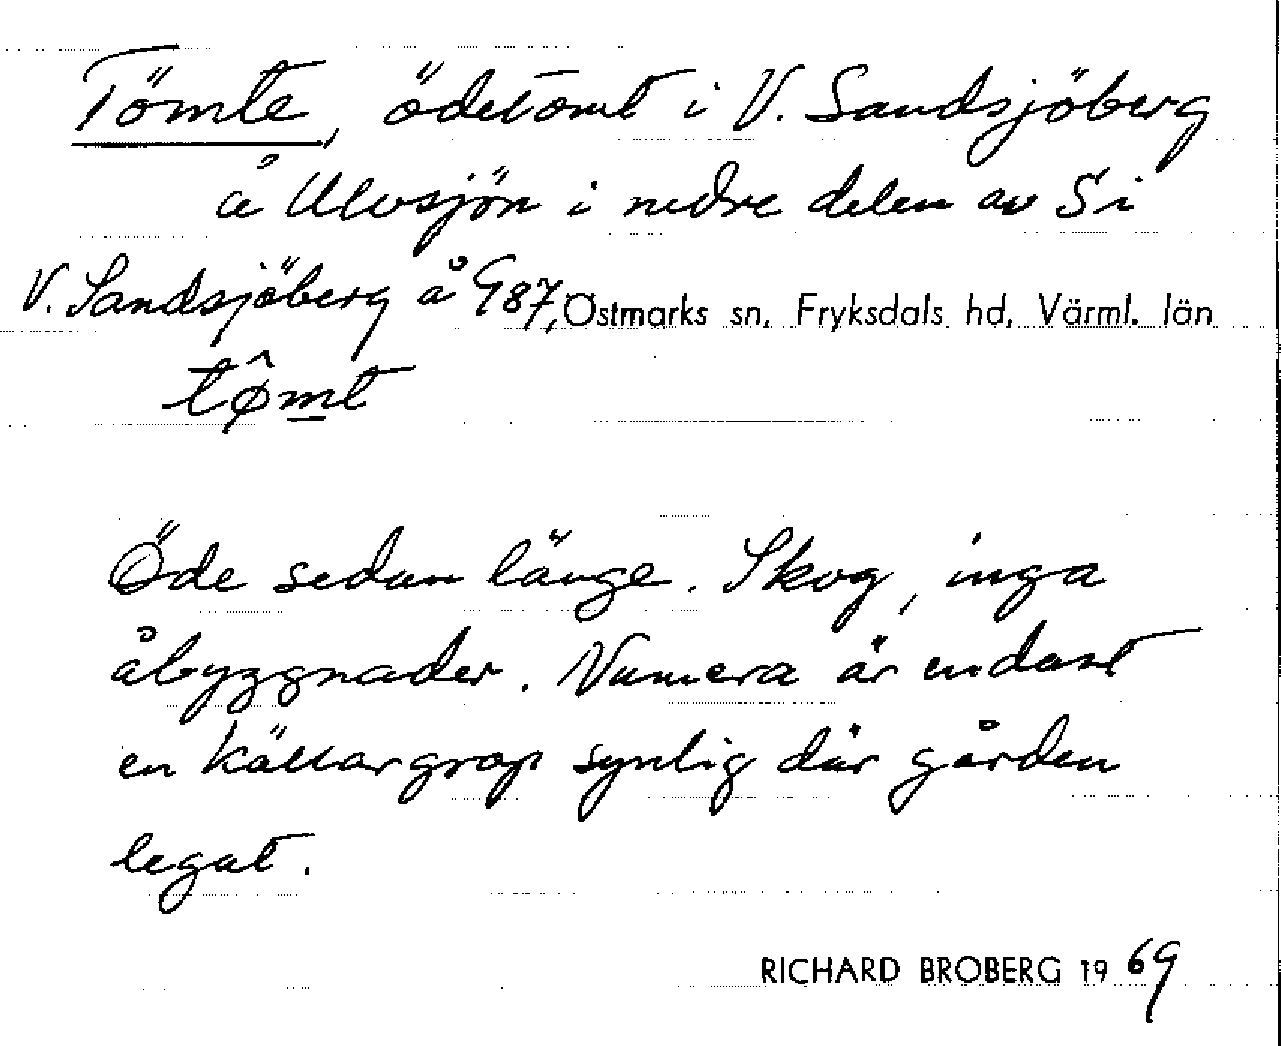 Tömte, ödetomt i V. Sandsjöberg
å Ulvsjön i nedre delen av Si
V. Sandsjöberg å G87, Östmarks sn, Fryksdals hd, Värml. län
tø̂mt
Öde sedan länge. Skog, inga
åbyggnader. Numera är endast
en källargrop synlig där gården
legat.
RICHARD BROBERG 1969